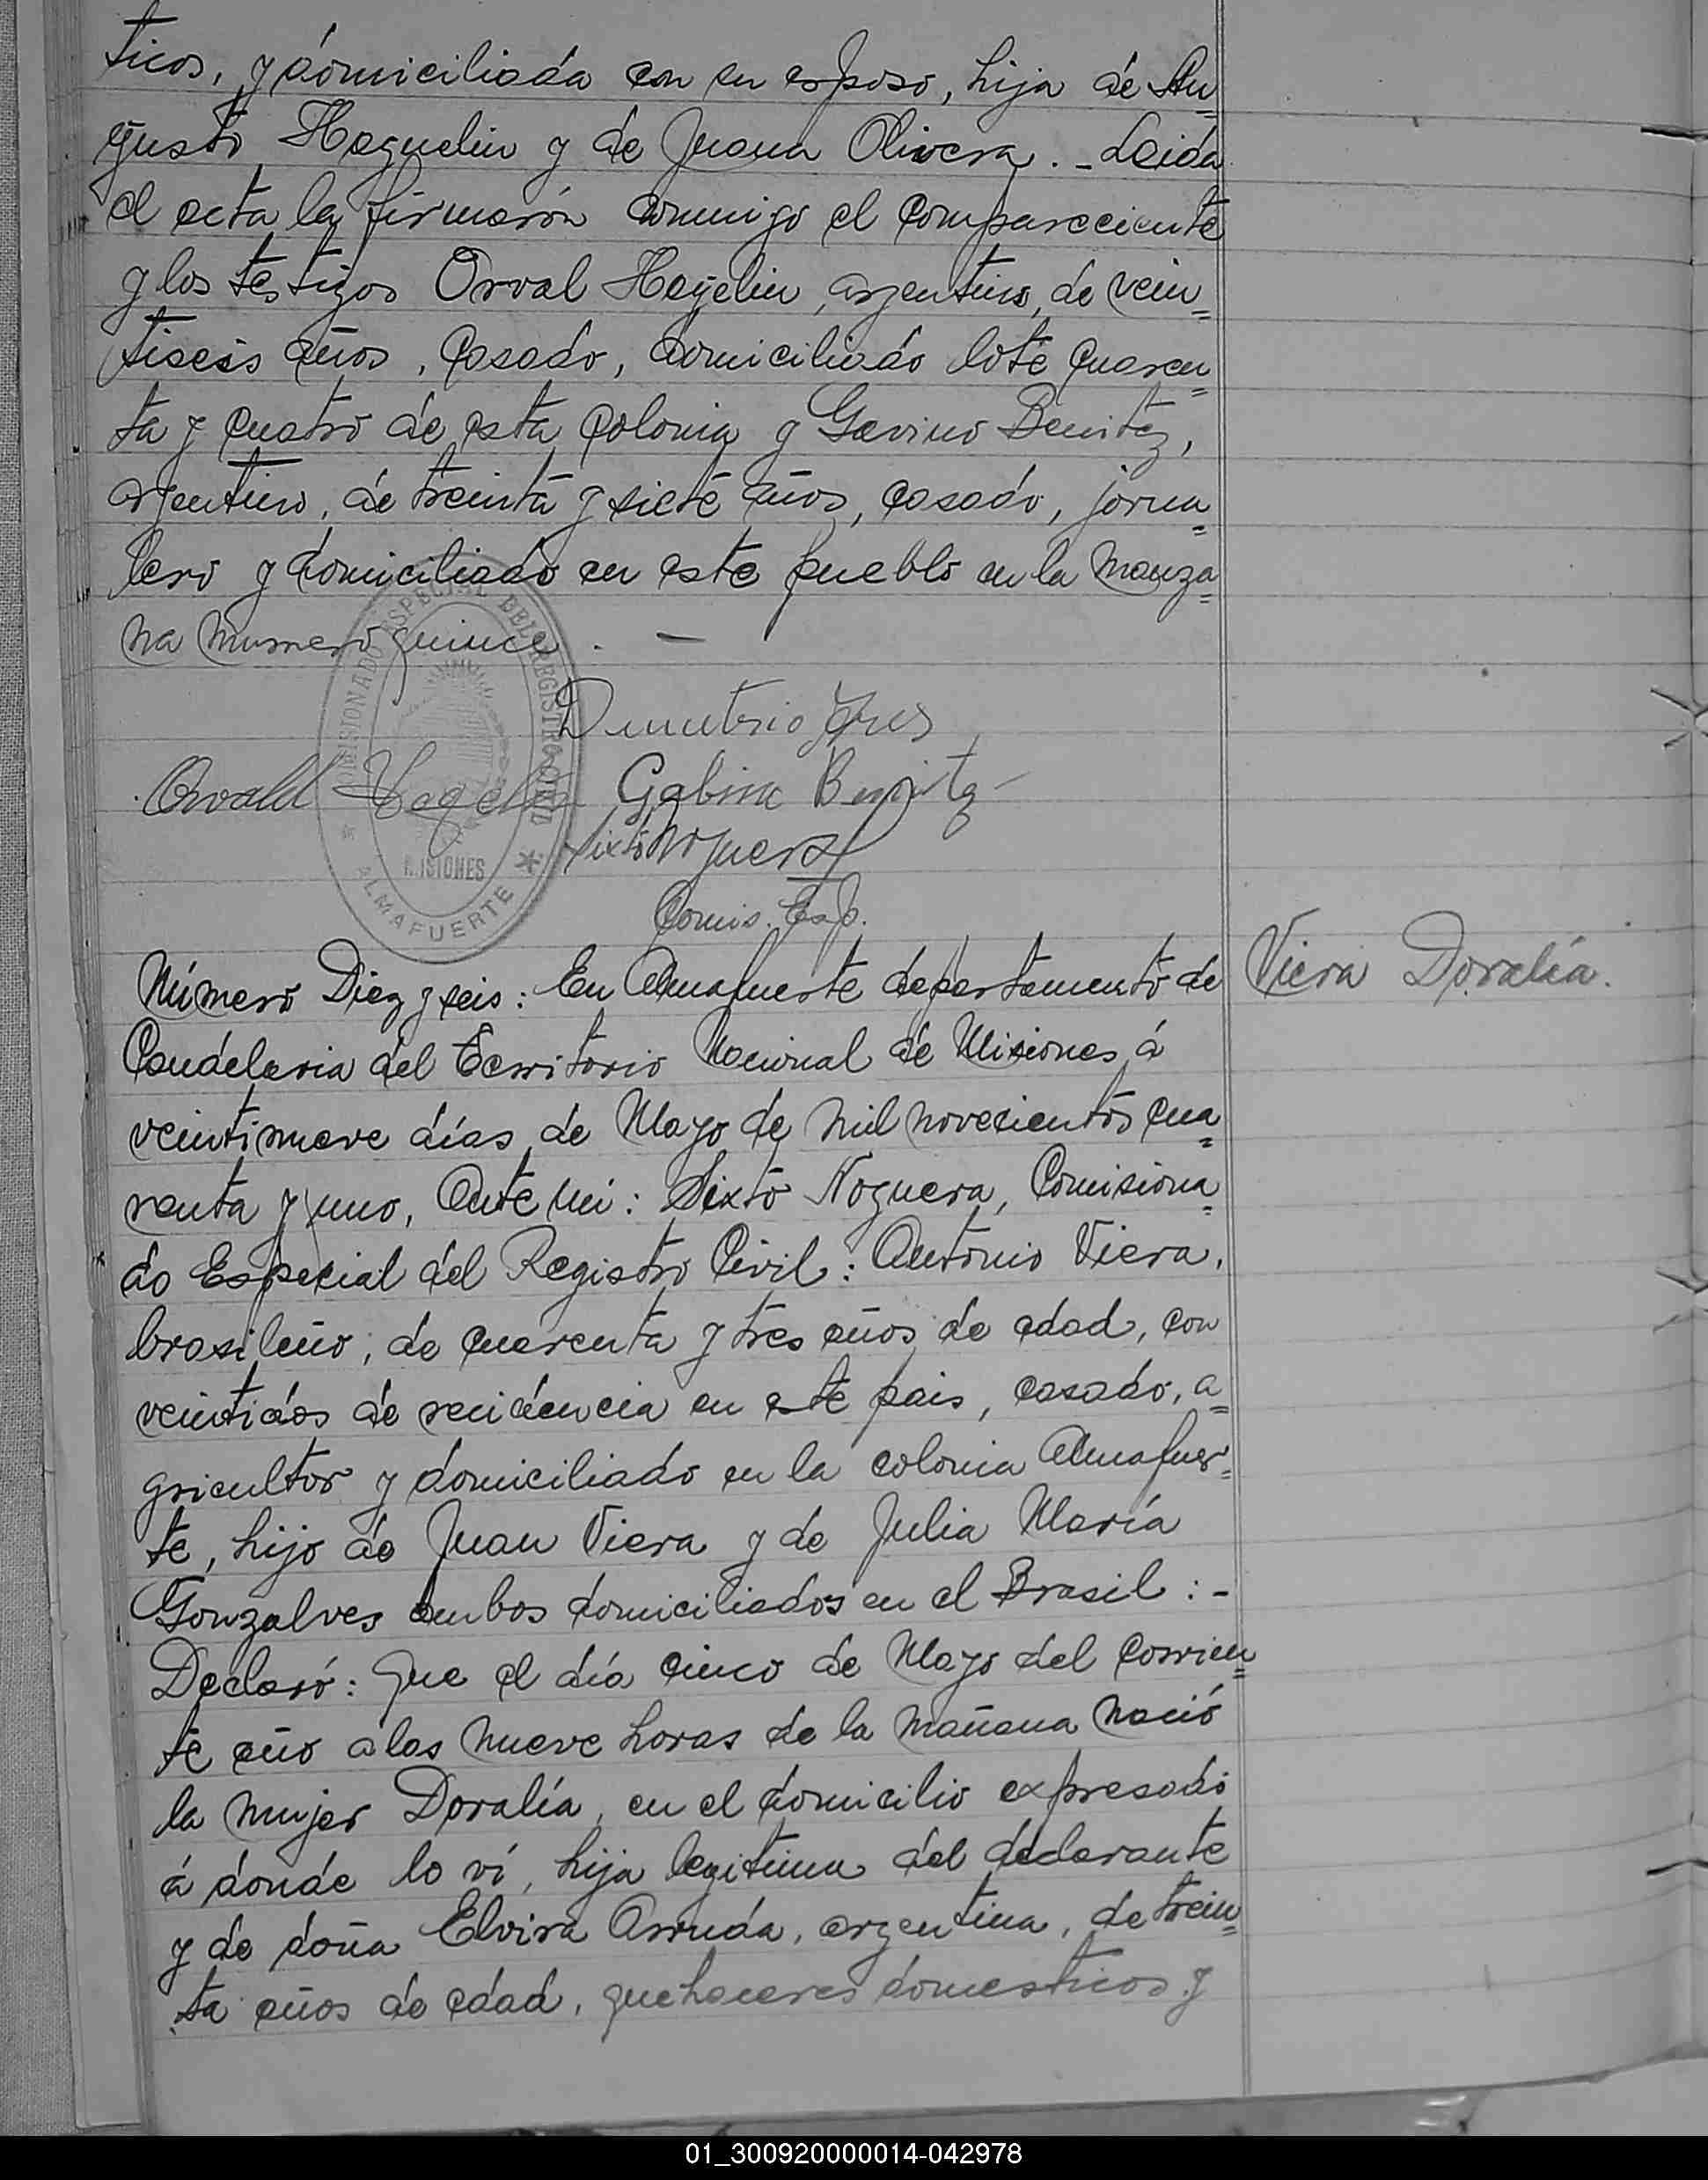 ticos, y domiciliada con su esposo, hija de Au=
gusto Hoguelin y de Juana Olivera. - Leida
el acta la firmarón conmigo el compareciente
y los testigos Orval Hogelin, argentino, de vein=
tiseis años, casado, domiciliado lote cuaren=
ta y cuatro de esta colonia y Gavino Benitez,
argentino, de treinta y siete años, casado, jorna=
lero y domiciliado en este pueblo en la manza=
na numero quince. —
COMISIONADO ESPECIAL DEL REGISTRO CIVIL
MISIONES
ALMAFUERTE
Demetrio
Orvald Hogelin Gabino Benitez
Sixto Noguera
Comis. Esp.
Número Diez y seis: En Almafuerte departamento de
Viera Doralía.
Candelaria del Territorio Nacional de Misiones á
veintinueve días de Mayo de mil novecientos cua=
renta y uno, Ante mi: Sixto Noguera, Comisiona=
do Especial del Registro Civil: Antonio Viera,
brasileño, de cuarenta y tres años de edad, con
veintidos de recidencia en este pais, casado, a=
gricultor y domiciliado en la colonia Almafuer=
te, hijo de Juan Viera y de Julia María
Gonzalves ambos domiciliados en el Brasil: -
Declaró: Que el día cinco de Mayo del corrien=
te año a las nueve horas de la mañana nació
la mujer Doralía, en el domicilio expresado
á donde lo ví, hija legitima del declarante
y de doña Elvira Arruda, argentina, de trein=
ta años de edad, quehaceres domesticos y
01_300920000014-042978